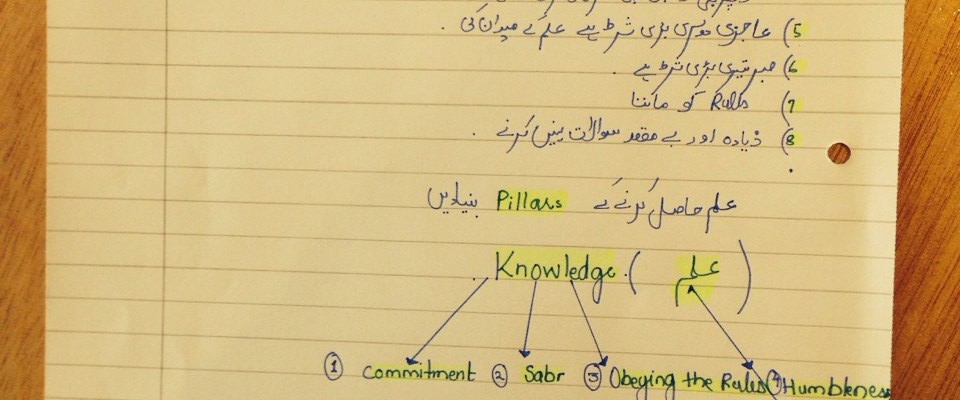 5) عاجزی دوسری بڑی شرط ہے علم کے میدان کی .
6) صبر تیسری بڑی شرط ہے .
7) Rules کو ماننا
8) زیادہ اور بے مقصد سوالات نہیں کرنے .
علم حاصل کرنے کے Pillars بنیادیں
Knowledge . ( علم )
① Commitment ② Sabr ③ Obeying the Rules ④ Humbleness